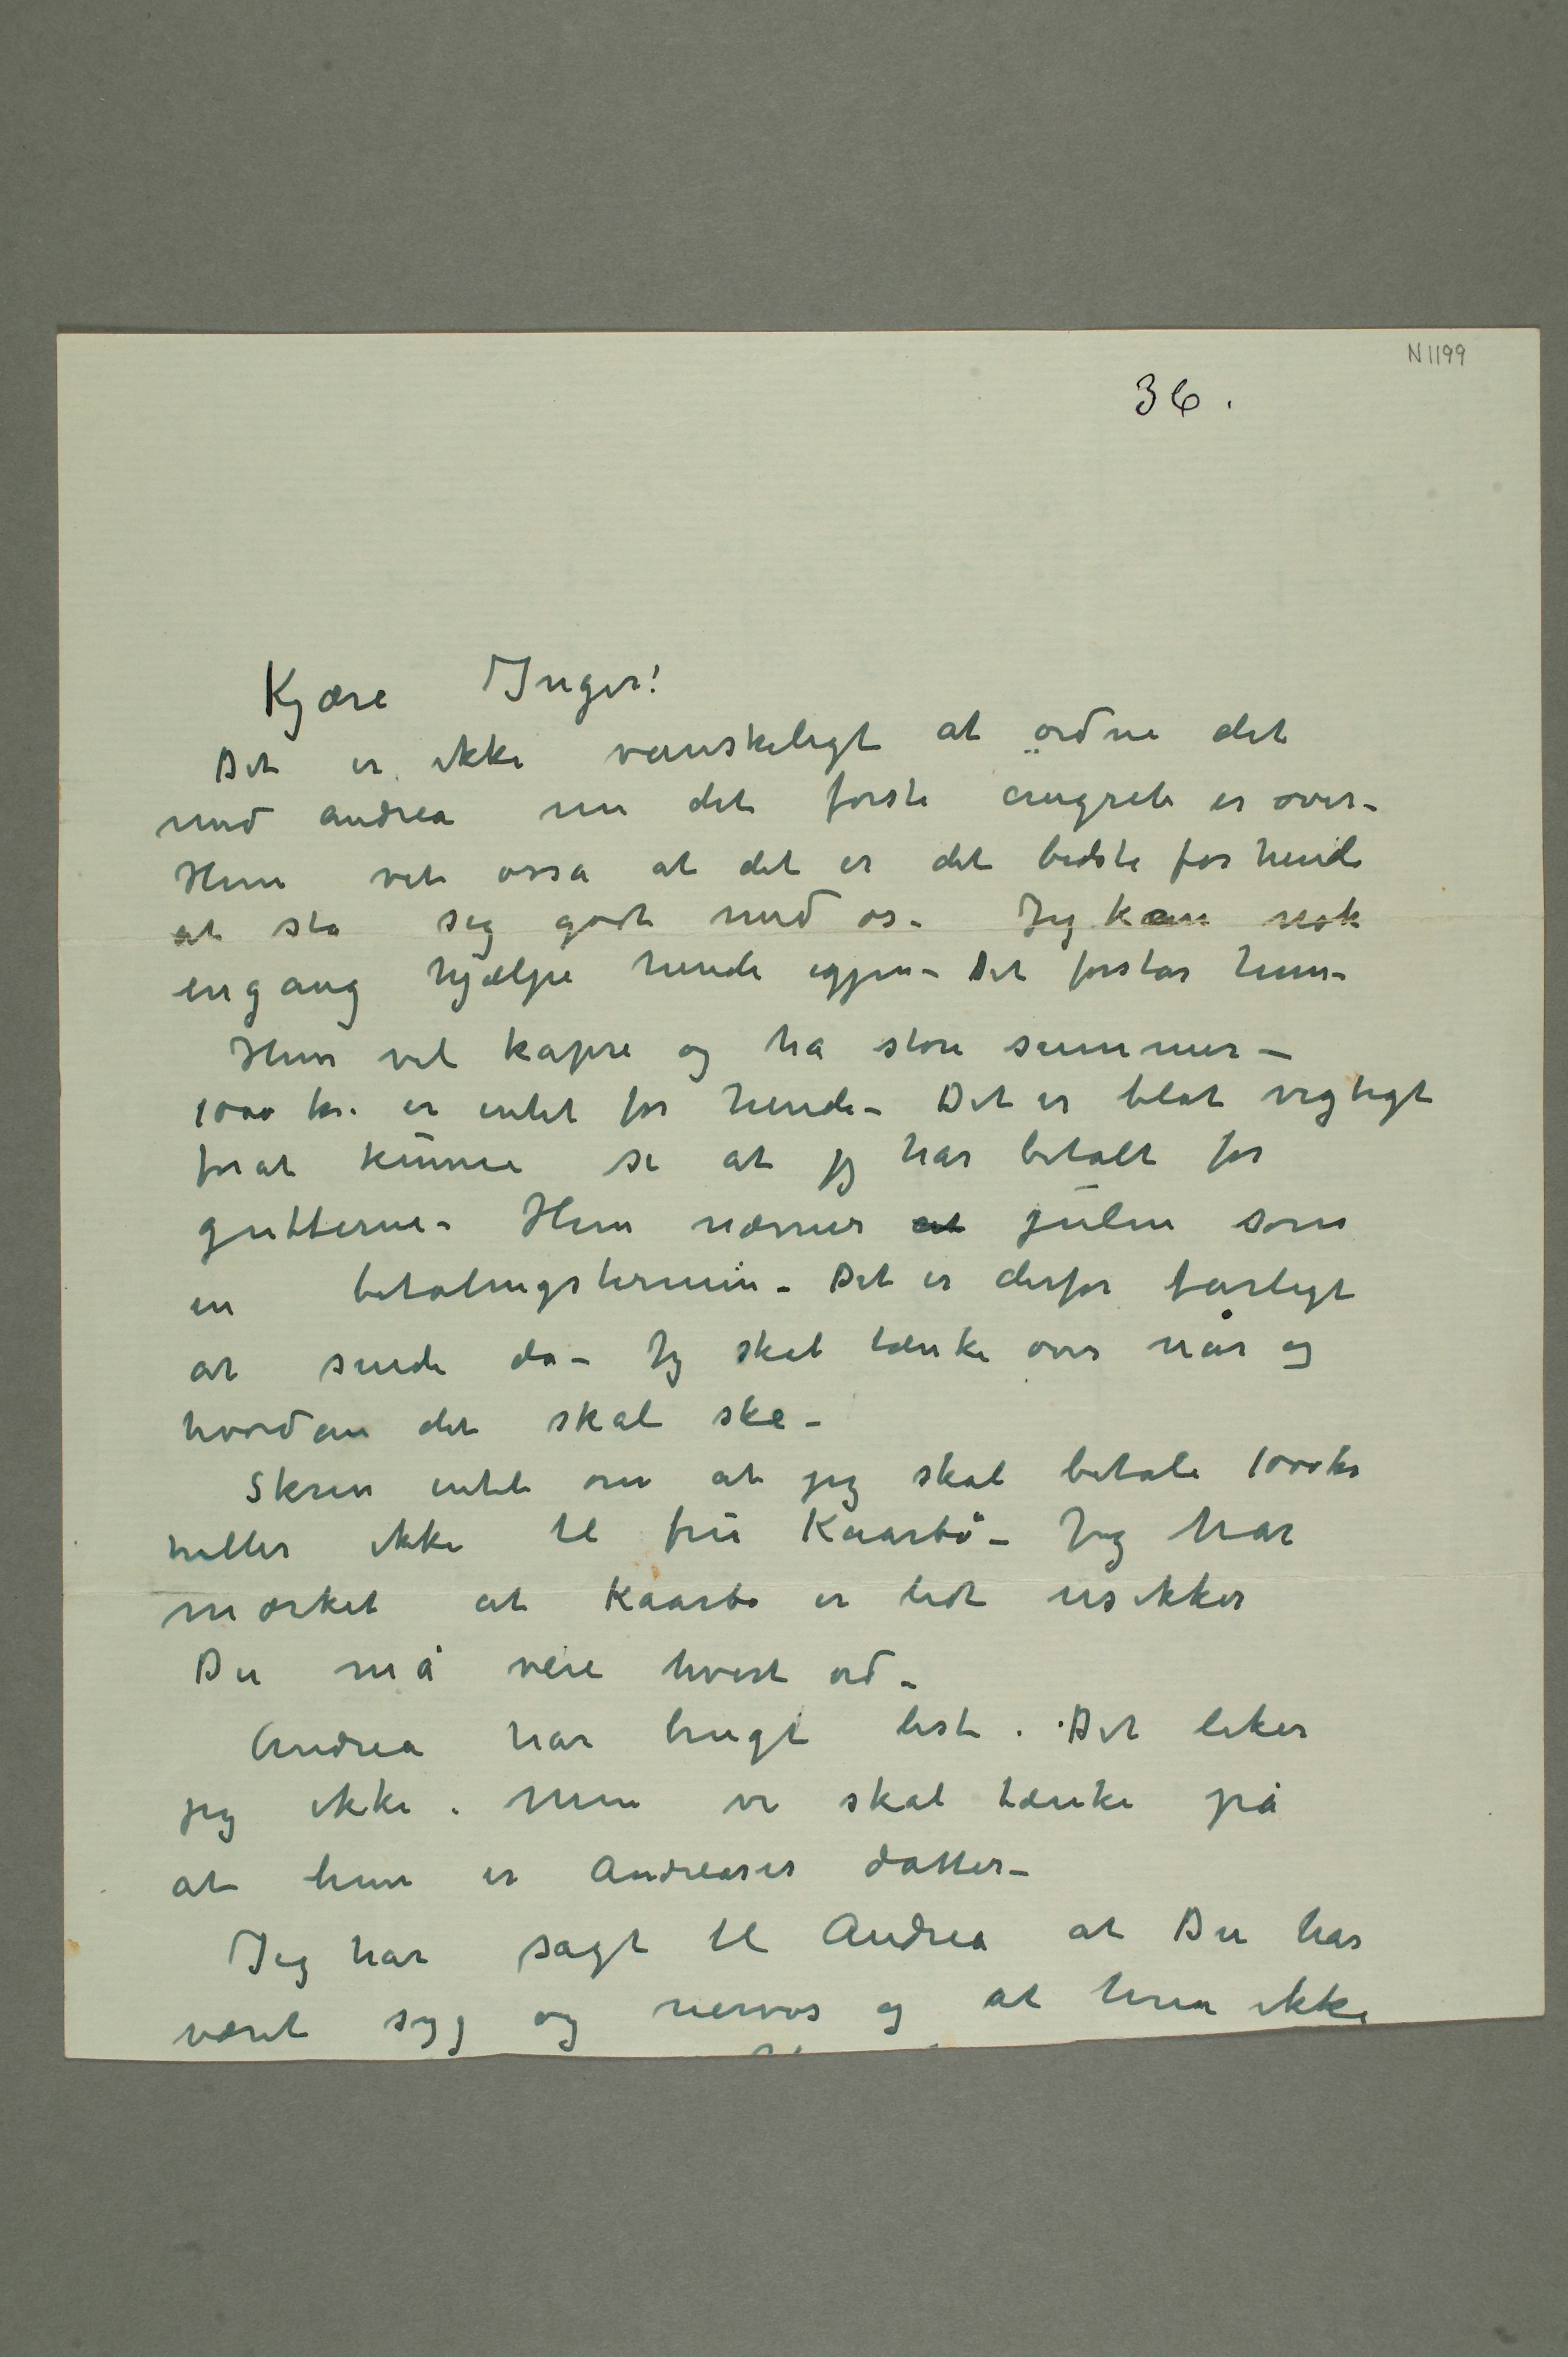 N 1199
36.
Kjære Inger!
Det er ikke vanskeligt at ordne det
med Andrea nu det første angreb er over –
Hun vet osså at det er det bedste for hende
at stå sig godt med os – Jeg kan nok
engang hjælpe hende igjen – Det forstår hun –
Hun vil kapre og ha store summer –
1000 kr. er intet for hende – Det er blot vigtigt
forat kunne se at jeg har betalt for
gutterne – Hun nævner at julen som
en betalingstermin – Det er derfor farligt
at sende da – Jeg skal tænke over når og
hvordan det skal ske –
Skriv intet om at jeg skal betale 1000 kr
heller ikke til fru Kaarbø – Jeg har
mærket at Kaarbø er lidt usikker
Du må veie hvert ord –
Andrea har brugt list. Det liker
jeg ikke. Men vi skal tænke på
at hun er Andreases datter –
Jeg har sagt til Andrea at Du har
været syg og nervøs og at hun ikke